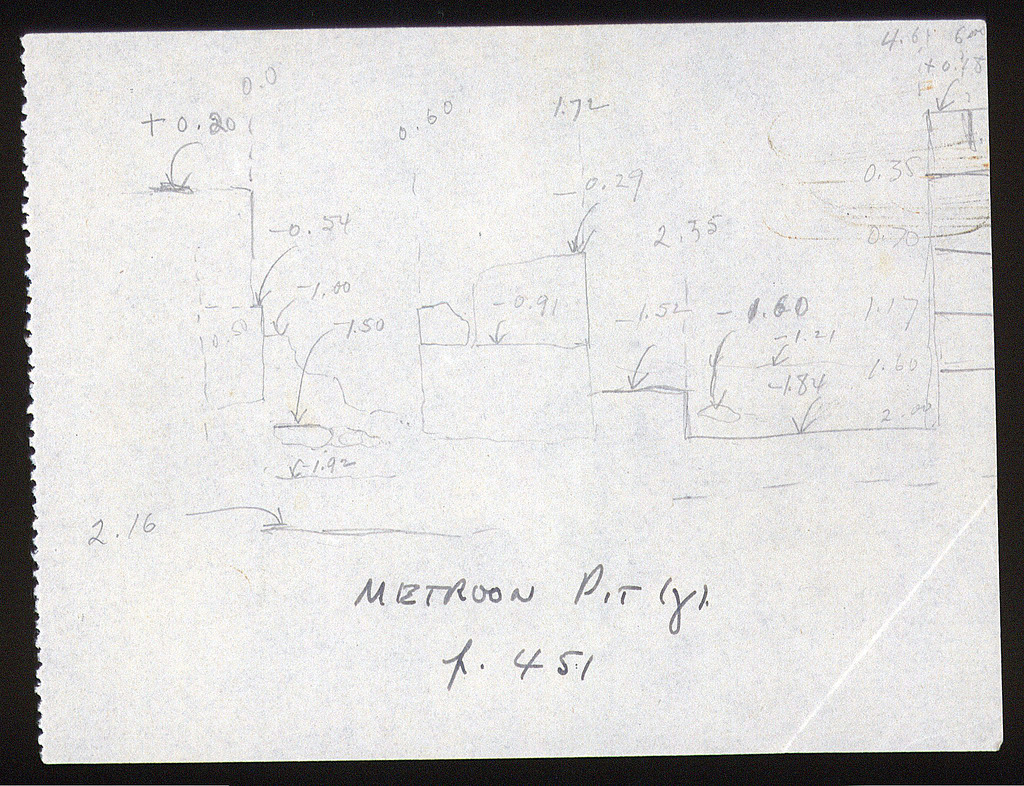 4.61
+0.18
0.0
+ 0.20
0.60
1.72
0.35
-0.29
-0.54
2.35
0.70
-1.00
-0.91
-1.52
-1.60
1.17
0.50
-1.50
-1.21
1.60
-1.84
2.00
-1.92
2.16
METROON PIT (γ).
p. 451